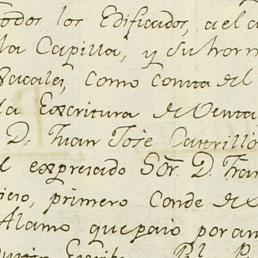 todos los Edificados, a el a
la Capilla, y su horn
Bacales, como consta del
la Excritura de Venta
D. Juan Jose Carrillo
l expresado Sor. D. Fran
iero, primero Conde de S
Alamo que paso por an